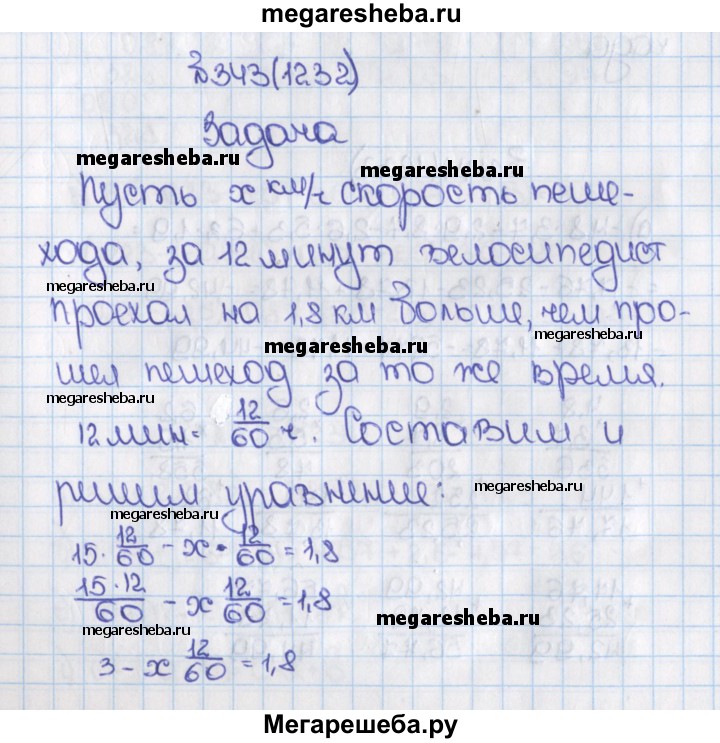 megaresheba.ru
№343(1232)
Задача
megaresheba.ru
Пусть x км/ч скорость пеше-
хода, за 12 минут велосипедист
megaresheba.ru
проехал на 1,8 км больше, чем про-
megaresheba.ru
megaresheba.ru
шел пешеход за то же время.
megaresheba.ru
12 мин = 12/60 ч. Составим и
решим уравнение:
megaresheba.ru
megaresheba.ru
15 · 12/60 - x · 12/60 = 1,8
15 · 12/60 - x 12/60 = 1,8
megaresheba.ru
megaresheba.ru
3 - x 12/60 = 1,8
Мегарешеба.ру